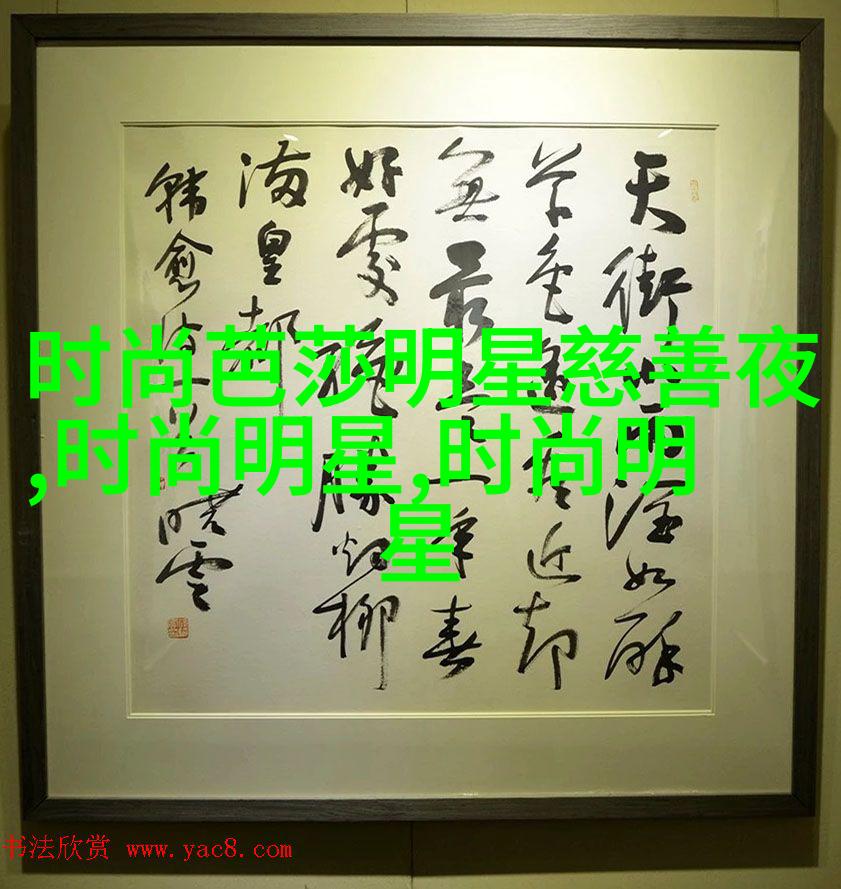 天街小雨潤如酥
草色遥看近却
無最是一年春
好處絕勝烟柳
滿皇都
韓愈詩一首
时尚芭莎明星慈善夜
,时尚明星,时尚明
星
书法欣赏 www.yac8.com